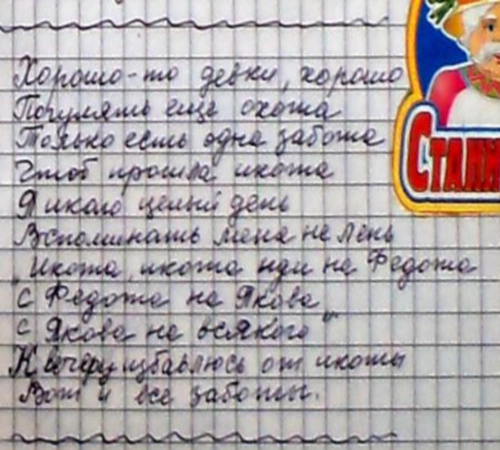 Хорошо-то девки, хорошо
Погулять еще охота
Только есть одна забота
Чтоб прошла икота
Я икаю целый день
Вспоминать меня не лень
"Икота, икота иди на Федота
С Федота на Якова
С Якова на всякого"
К вечеру избавлюсь от икоты
Вот и все заботы.
СТАНИ